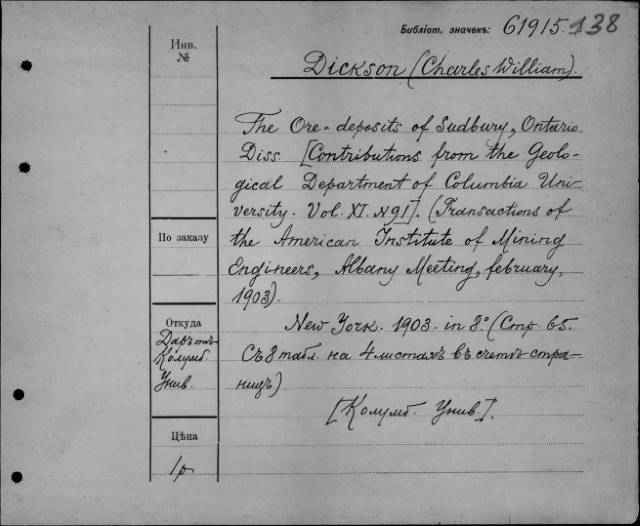 Библіот. значекъ: 61915.138
Инв.
№
Dickson (Charles William).
The Ore-deposits of Sudbury, Ontario.
Diss. [Contributions from the Geolo-
gical Department of Columbia Uni-
versity. Vol. XI. № 91]. (Transactions of
По заказу
the American Institute of Mining
Engineers, Albany Meeting, february,
1903).
Откуда
New York. 1903. in 8.° (Стр. 65.
Даръ отъ
Колумб.
Съ 8 табл. на 4 листахъ въ счетъ стра-
Унив.
ницъ)
[Колумб. Унив.].
Цѣна
1 р